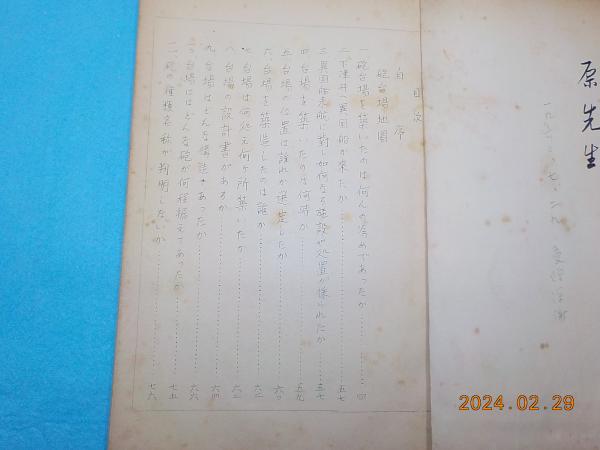 原先生
目次
自序
砲台場地圖
一、砲台場を築いたのは何んの為めであったか………四
二、下津井へ異国船が来たか………五七
三、異国船来航に対し如何なる施設や処置が採られたか………五七
四、台場を築いたのは何時か………五九
五、台場の位置は誰れが選定したか………六〇
六、台場を築造したのは誰か………六二
七、台場は何処え何ヶ所築いたか………六二
八、台場の設計書があるか………六四
九、台場はどんな構造であったか………六六
一〇、台場にはどんな砲が何程据えてあったか………七五
一一、砲の種類名称が判明しないか………七六
2024.02.29